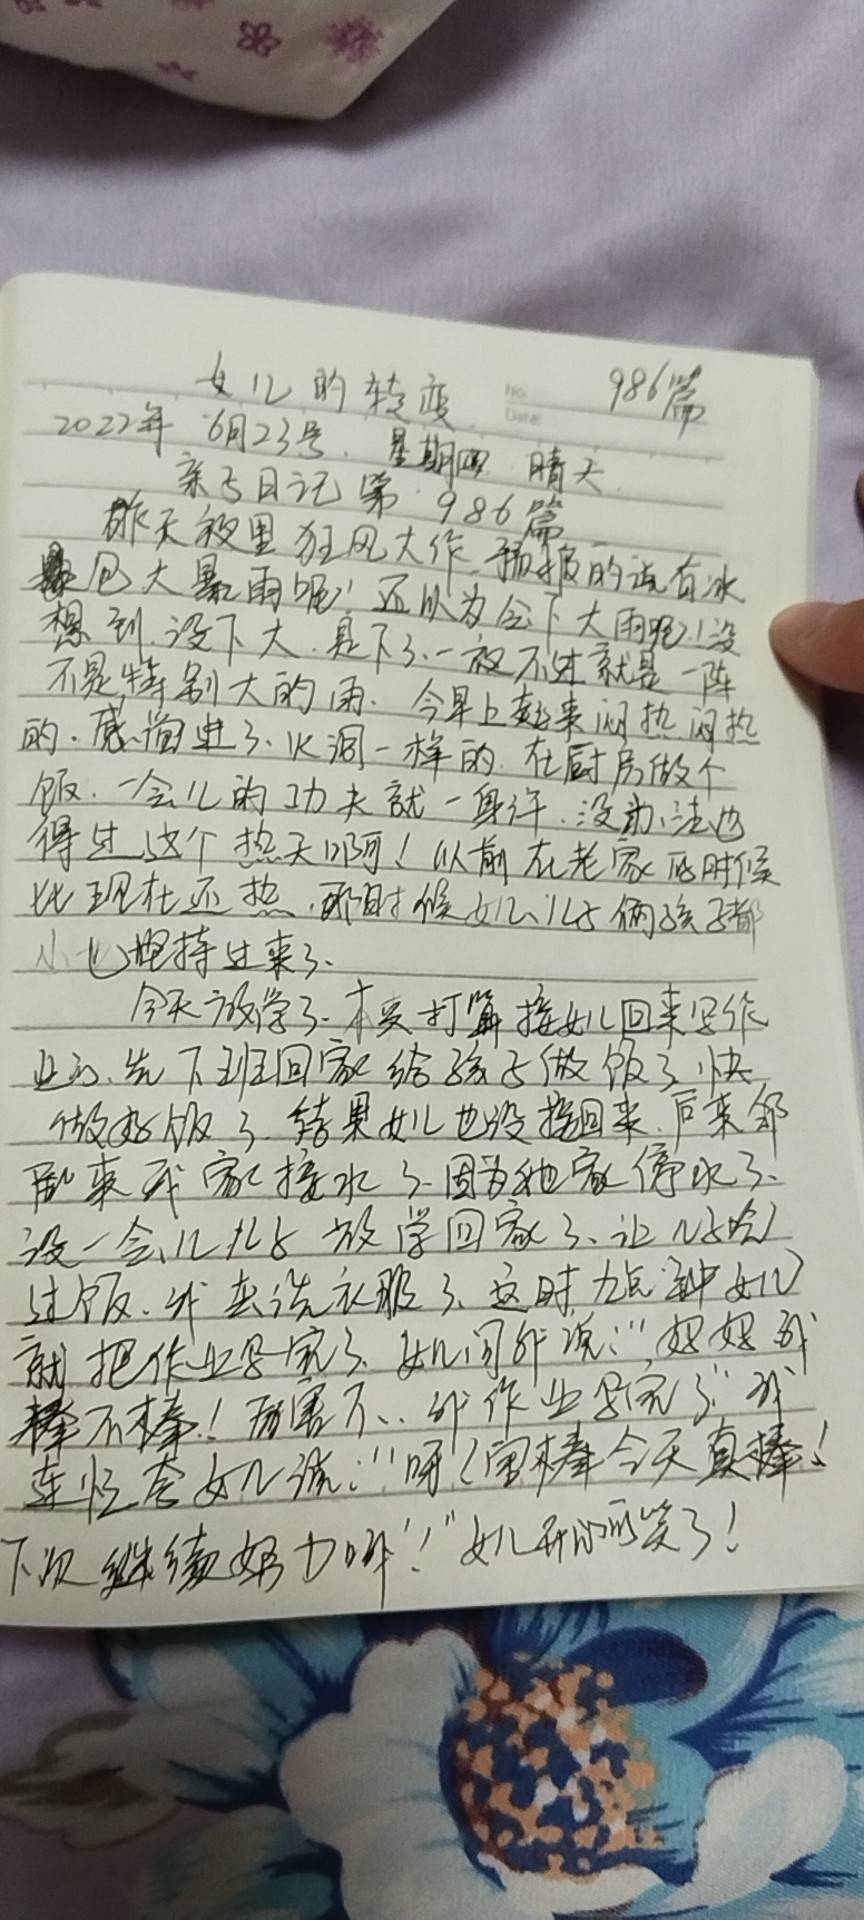 女儿的转变
986篇
No.
Date:
2022年 6月23号. 星期四 晴天
亲子日记第 986篇
昨天夜里狂风大作 预报的说有冰
雹大暴雨呢! 还以为会下大雨呢!没
想到.没下大.是下了.一夜不过就是一阵
不是特别大的雨. 今早上起来闷热闷热
的.感觉进了火洞一样的.在厨房做个
饭.一会儿的功夫就一身汗.没办法也
得过这个热天啊! 以前在老家的时候
比现在还热.那时候女儿儿子俩孩子都
小也坚持过来了.
今天放学了.本来打算接女儿回来写作
业的.先下班回家给孩子做饭了.快
做好饭了.结果女儿也没接回来.后来邻
居来我家接水了.因为他家停水了.
没一会儿儿子放学回家了.让儿子吃
过饭.我去洗衣服了.这时九点钟女儿
就把作业写完了.女儿问我说:"妈妈我
棒不棒!厉害不..我作业写完了"我
连忙夸女儿说:"呀!宝棒今天真棒!
下次继续努力呀!"女儿开心的笑了!